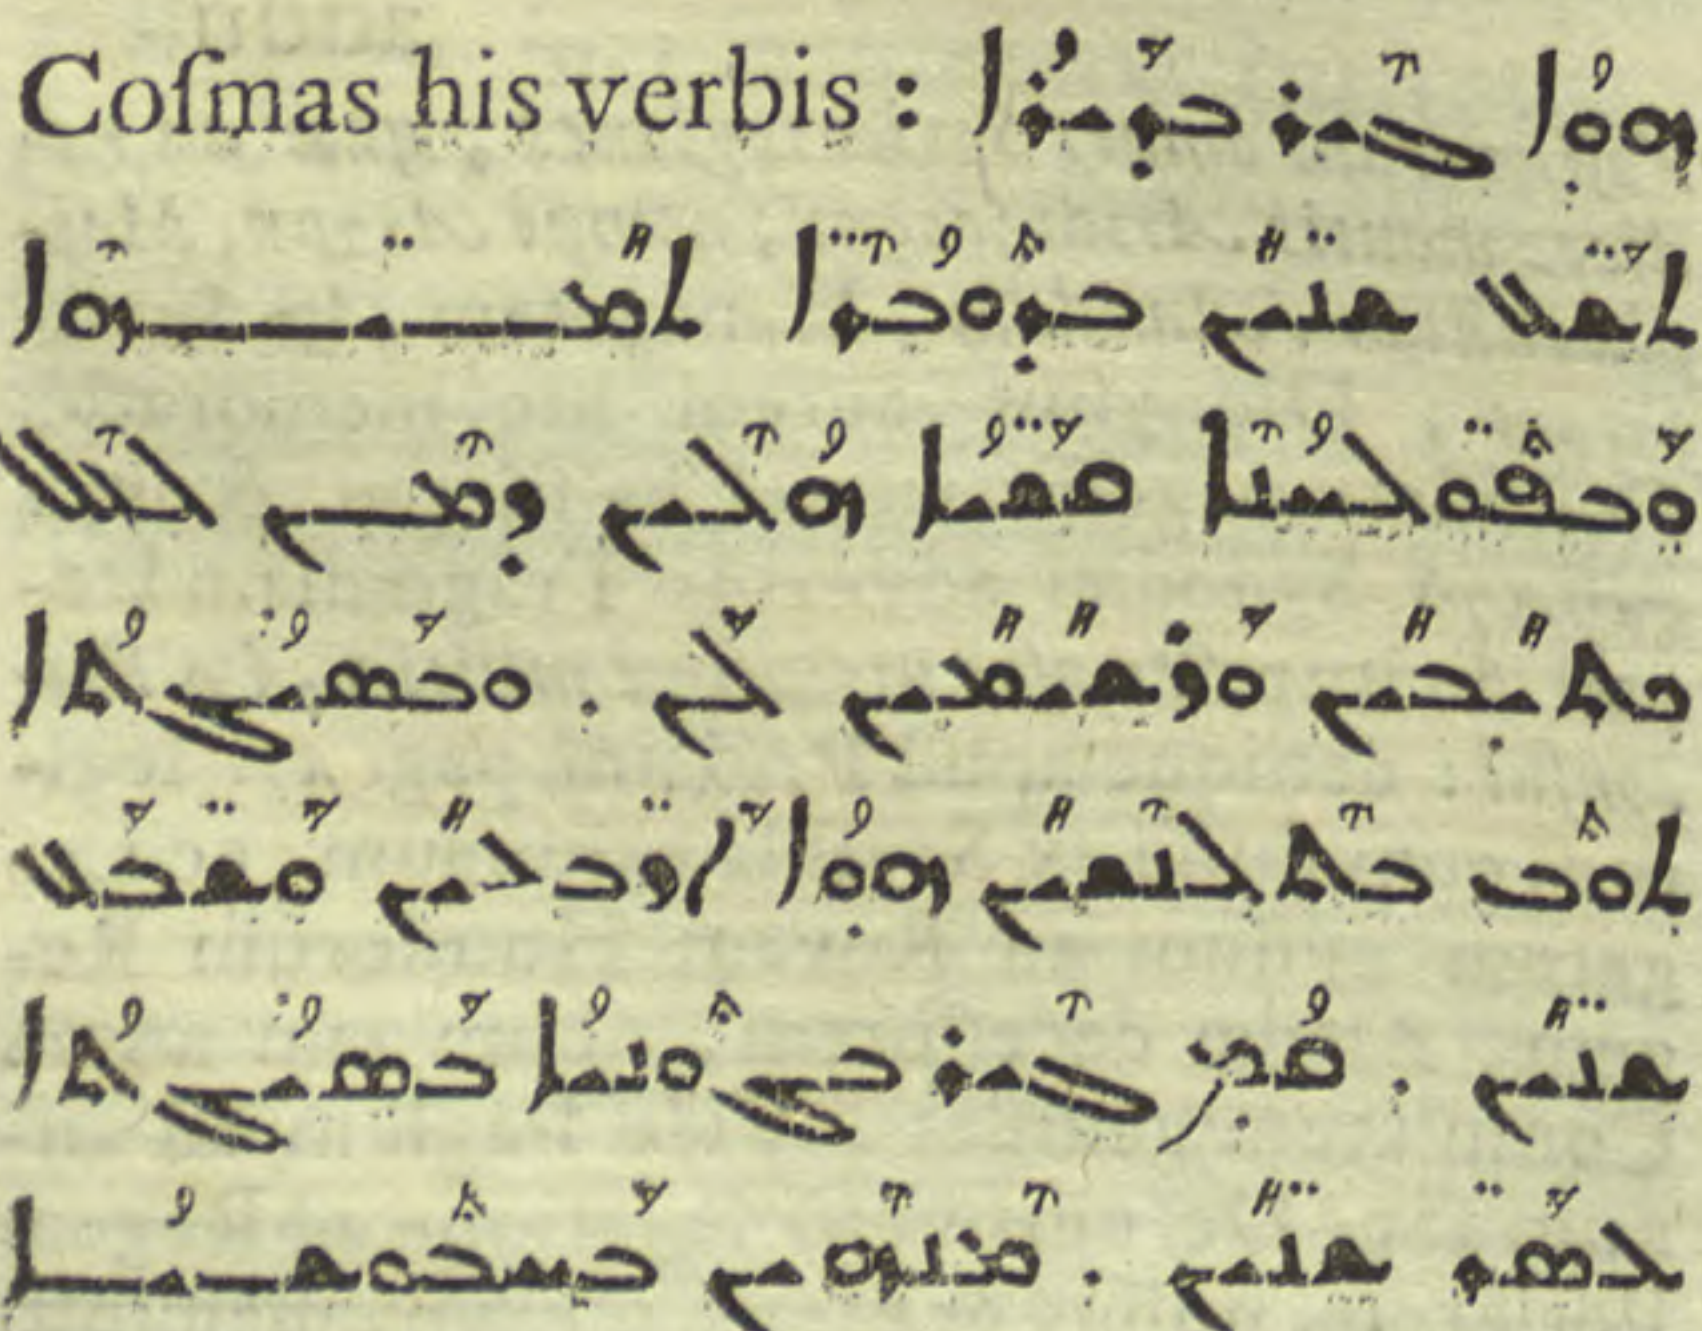 Cosmas his verbis : ܗܘܐ ܓܝܪ ܒܕܝܪܐ
ܬܫܥ ܫܢܝܢ ܒܕܘܒܪܐ ܬܡܝܗܐ
ܘܒܦܘܠܚܢܐ ܩܫܝܐ ܗܠܝܢ ܕܡܢ ܠܥܠ
ܟܬܝܒܝܢ ܘܪܫܝܡܝܢ ܠܢ . ܘܒܣܝܓܬܐ
ܬܘܒ ܒܬܠܢܫܝܢ ܗܘܐ ܐܪܒܥܝܢ ܘܫܒܥ
ܫܢܝܢ . ܩܡ ܓܝܪ ܒܓܘܢܝܐ ܒܣܝܓܬܐ
ܥܣܪ ܫܢܝܢ . ܡܢܗܝܢ ܒܚܒܘܫܝܐ